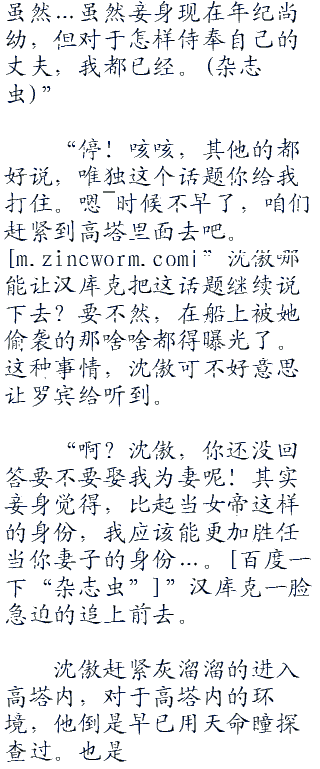 虽然…虽然妾身现在年纪尚
幼，但对于怎样侍奉自己的
丈夫，我都已经。(杂志
虫)”
“停！咳咳，其他的都
好说，唯独这个话题你给我
打住。嗯¯时候不早了，咱们
赶紧到高塔里面去吧。
[m.zincworm.com|”沈傲哪
能让汉库克把这话题继续说
下去？要不然，在船上被她
偷袭的那啥啥都得曝光了。
这种事情，沈傲可不好意思
让罗宾给听到。
“啊？沈傲，你还没回
答要不要娶我为妻呢！其实
妾身觉得，比起当女帝这样
的身份，我应该能更加胜任
当你妻子的身份…。[百度一
下“杂志虫”]”汉库克一脸
急迫的追上前去。
沈傲赶紧灰溜溜的进入
高塔内，对于高塔内的环
境，他倒是早已用天命瞳探
查过。也是